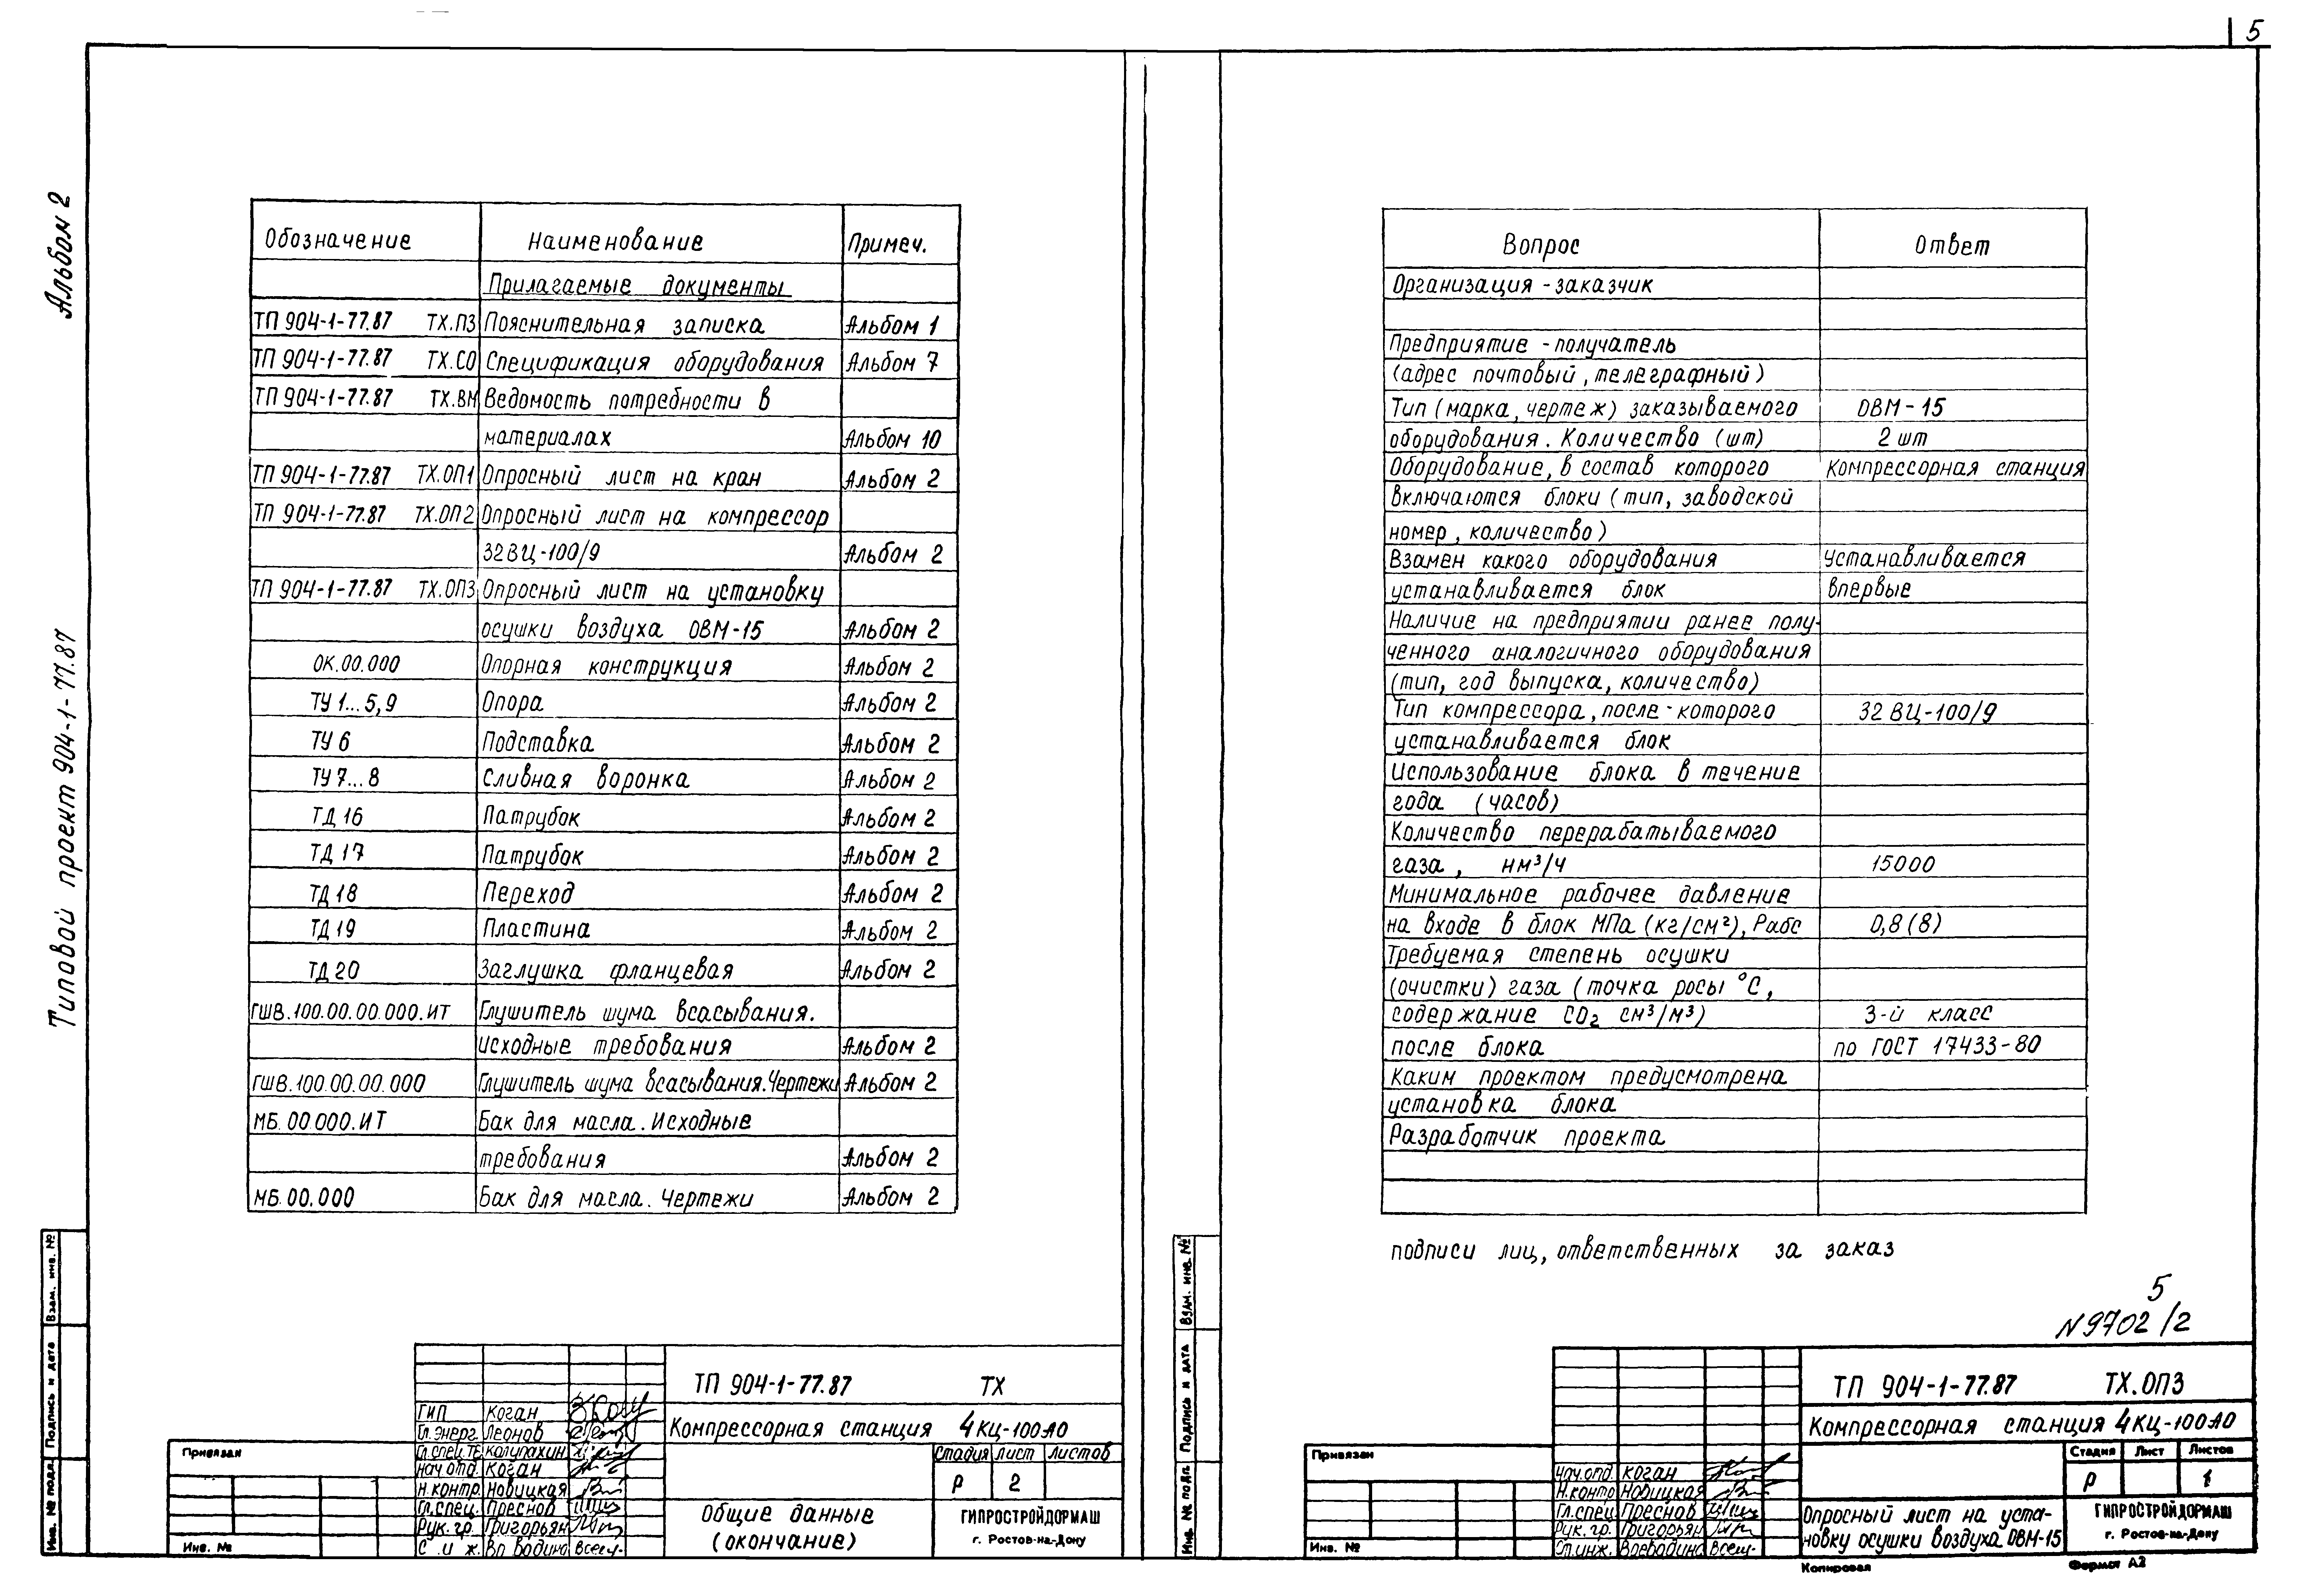 5
Альбом 2
Типовой проект 904-1-77.87
Обозначение Наименование Примеч.
Прилагаемые документы
ТП 904-1-77.87 ТХ.ПЗ Пояснительная записка Альбом 1
ТП 904-1-77.87 ТХ.СО Спецификация оборудования Альбом 7
ТП 904-1-77.87 ТХ.ВМ Ведомость потребности в
материалах Альбом 10
ТП 904-1-77.87 ТХ.ОП1 Опросный лист на кран Альбом 2
ТП 904-1-77.87 ТХ.ОП2 Опросный лист на компрессор
32ВЦ-100/9 Альбом 2
ТП 904-1-77.87 ТХ.ОП3 Опросный лист на установку
осушки воздуха ОВМ-15 Альбом 2
ОК.00.000 Опорная конструкция Альбом 2
ТУ 1...5,9 Опора Альбом 2
ТУ 6 Подставка Альбом 2
ТУ 7...8 Сливная воронка Альбом 2
ТД 16 Патрубок Альбом 2
ТД 17 Патрубок Альбом 2
ТД 18 Переход Альбом 2
ТД 19 Пластина Альбом 2
ТД 20 Заглушка фланцевая Альбом 2
ГШВ.100.00.00.000.ИТ Глушитель шума всасывания.
Исходные требования Альбом 2
ГШВ.100.00.00.000 Глушитель шума всасывания.Чертежи Альбом 2
МБ.00.000.ИТ Бак для масла.Исходные
требования Альбом 2
МБ.00.000 Бак для масла. Чертежи Альбом 2
Взам. инв. №
Подпись и дата
Инв. № подл.
Привязан
Инв. №
ГИП Коган
Гл.энерг. Леонов
Гл.спец.ТЕ Колипахин
Нач.отд. Коган
Н.контр. Новицкая
Гл.спец. Преснов
Рук.гр. Григорьян
ТП 904-1-77.87 ТХ
Компрессорная станция 4КЦ-100А0
Стадия Лист Листов
Р 2
Общие данные
(окончание)
ГИПРОСТРОЙДОРМАШ
г. Ростов-на-Дону
Вопрос Ответ
Организация-заказчик
Предприятие-получатель
(адрес почтовый, телеграфный)
Тип (марка, чертеж) заказываемого ОВМ-15
оборудования. Количество (шт) 2 шт
Оборудование, в состав которого Компрессорная станция
включаются блоки (тип, заводской
номер, количество)
Взамен какого оборудования Устанавливается
устанавливается блок впервые
Наличие на предприятии ранее полу-
ченного аналогичного оборудования
(тип, год выпуска, количество)
Тип компрессора, после-которого 32 ВЦ-100/9
устанавливается блок
Использование блока в течение
года (часов)
Количество перерабатываемого
газа, нм³/ч 15000
Минимальное рабочее давление
на входе в блок МПа (кг/см²), Рабс 0,8 (8)
Требуемая степень осушки
(очистки) газа (точка росы °С,
содержание СО₂ см³/м³) 3-й класс
после блока по ГОСТ 17433-80
Каким проектом предусмотрена
установка блока
Разработчик проекта
подписи лиц, ответственных за заказ
5
N 9702/2
Взам. инв. №
Подпись и дата
Инв. № подл.
Привязан
Инв. №
Нач.отд. Коган
Н.контр Новицкая
Гл.спец. Преснов
Рук.гр. Григорьян
Ст.инж. Воеводина
ТП 904-1-77.87 ТХ.ОП3
Компрессорная станция 4КЦ-100А0
Стадия Лист Листов
Р 1
Опросный лист на уста-
новку осушки воздуха ОВМ-15
ГИПРОСТРОЙДОРМАШ
г. Ростов-на-Дону
Копировал Формат А2